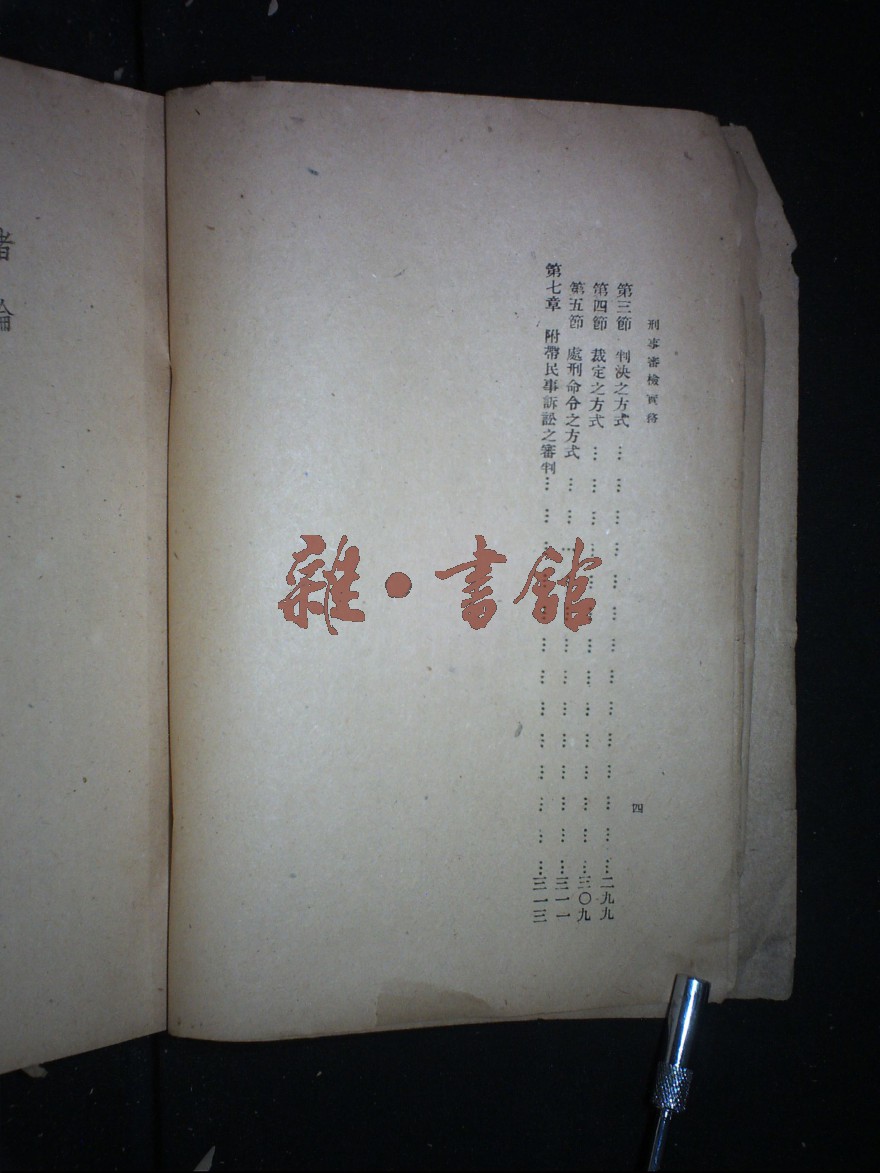 刑事審檢實務
四
第三節 判決之方式 … … … … … … … … … … … … … …二九九
第四節 裁定之方式 … … … … … … … … … … … … … …三〇九
第五節 處刑命令之方式 … … … … … … … … … … … … …三一一
第七章 附帶民事訴訟之審判… … … … … … … … … … … … …三一三
緒論
雜·書館